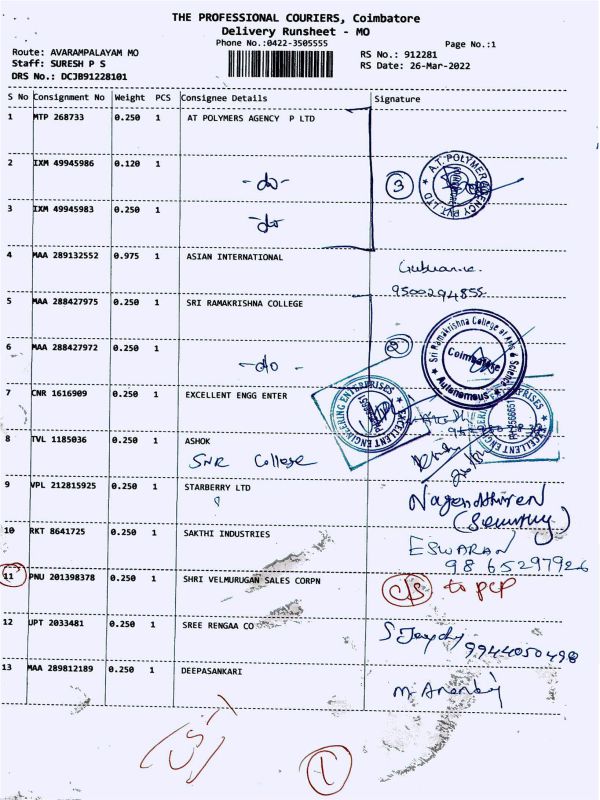 THE PROFESSIONAL COURIERS, Coimbatore
Delivery Runsheet - MO
Phone No.:0422-3505555
Page No.:1
Route: AVARAMPALAYAM MO
RS No.: 912281
Staff: SURESH P S
RS Date: 26-Mar-2022
DRS No.: DCJB91228101
S No Consignment No Weight PCS Consignee Details Signature
1 MTP 268733 0.250 1 AT POLYMERS AGENCY P LTD
2 IXM 49945986 0.120 1 -do-
3
A.T. POLYMER AGENCY PVT. LTD
3 IXM 49945983 0.250 1 -do-
4 MAA 289132552 0.975 1 ASIAN INTERNATIONAL
9500294855
5 MAA 288427975 0.250 1 SRI RAMAKRISHNA COLLEGE
Sri Ramakrishna College of Arts & Science
Coimbatore
Autonomous
6 MAA 288427972 0.250 1 -do-
2
7 CNR 1616909 0.250 1 EXCELLENT ENGG ENTER
EXCELLENT ENGINEERING ENTERPRISES
8 TVL 1185036 0.250 1 ASHOK
SNR College
9 VPL 212815925 0.250 1 STARBERRY LTD
(Security)
10 RKT 8641725 0.250 1 SAKTHI INDUSTRIES
ESWARAN
9865297926
11 PNU 201398378 0.250 1 SHRI VELMURUGAN SALES CORPN
CS to PCP
12 UPT 2033481 0.250 1 SREE RENGAA CO
9944050498
13 MAA 289812189 0.250 1 DEEPASANKARI
1